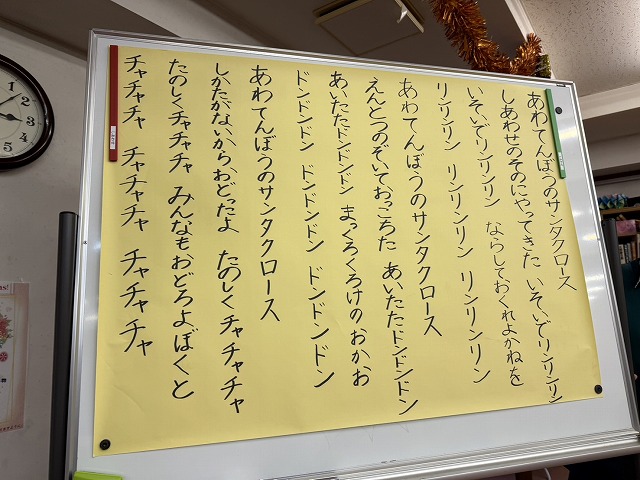 あわてんぼうのサンタクロース
しあわせのそのにやってきた いそいでリンリンリン
いそいでリンリンリン ならしておくれよかねを
リンリンリン リンリンリン リンリンリン
あわてんぼうのサンタクロース
えんとつのぞいておっこちた あいたたドンドンドン
あいたたドンドンドン まっくろくろけのおかお
ドンドンドン ドンドンドン ドンドンドン
あわてんぼうのサンタクロース
しかたがないからおどったよ たのしくチャチャチャ
たのしくチャチャチャ みんなもおどろよぼくと
チャチャチャ チャチャチャ チャチャチャ